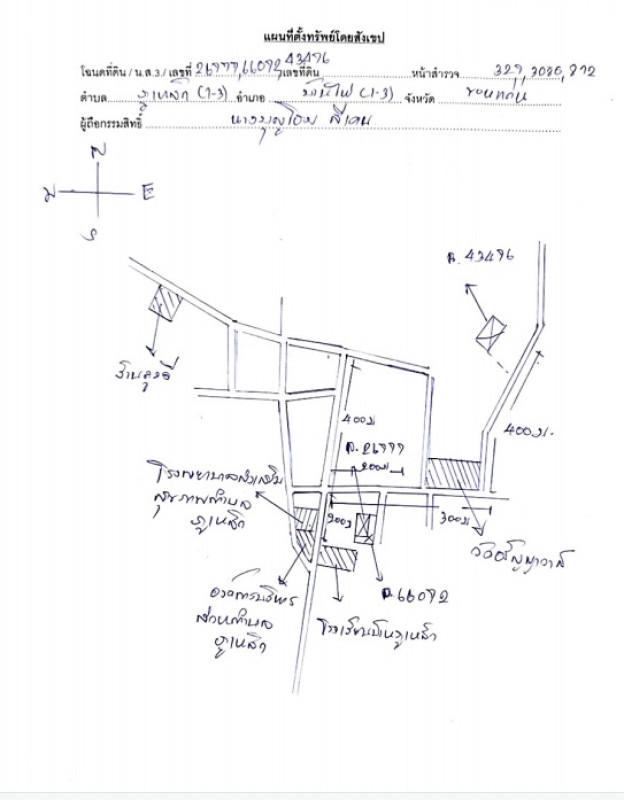 แผนที่ตั้งทรัพย์โดยสังเขป
โฉนดที่ดิน / น.ส.3./ เลขที่ 26977,66092,43496 เลขที่ดิน หน้าสำรวจ 329,3080,872
ตำบล ภูเหล็ก (1-3) อำเภอ บ้านไผ่ (1-3) จังหวัด ขอนแก่น
ผู้ถือกรรมสิทธิ์ นางบุญโฮม สีเคน
N
E
S
ฉ. 43496
400ม.
400ม
ฉ. 26977
200ม
โรงพยาบาลส่งเสริม
สุขภาพตำบล
ภูเหล็ก
200ม
300ม
วัด
องค์การบริหาร
ส่วนตำบล
ภูเหล็ก
โรงเรียนบ้านภูเหล็ก
ฉ.66092